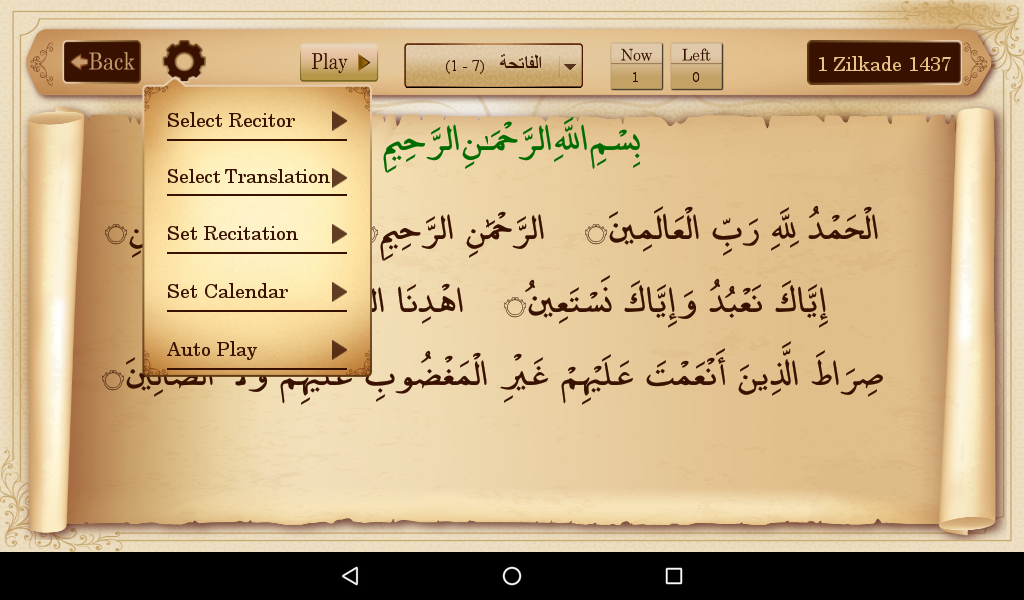 Back
Play
الفاتحة (1 - 7)
Now
1
Left
0
1 Zilkade 1437
Select Recitor
Select Translation
Set Recitation
Set Calendar
Auto Play
بِسْمِ اللَّهِ الرَّحْمَـٰنِ الرَّحِيمِ
الْحَمْدُ لِلَّهِ رَبِّ الْعَالَمِينَ الرَّحْمَٰنِ الرَّحِيمِ
إِيَّاكَ نَعْبُدُ وَإِيَّاكَ نَسْتَعِينُ اهْدِنَا
صِرَاطَ الَّذِينَ أَنْعَمْتَ عَلَيْهِمْ غَيْرِ الْمَغْضُوبِ عَلَيْهِمْ وَلَا الضَّالِّينَ